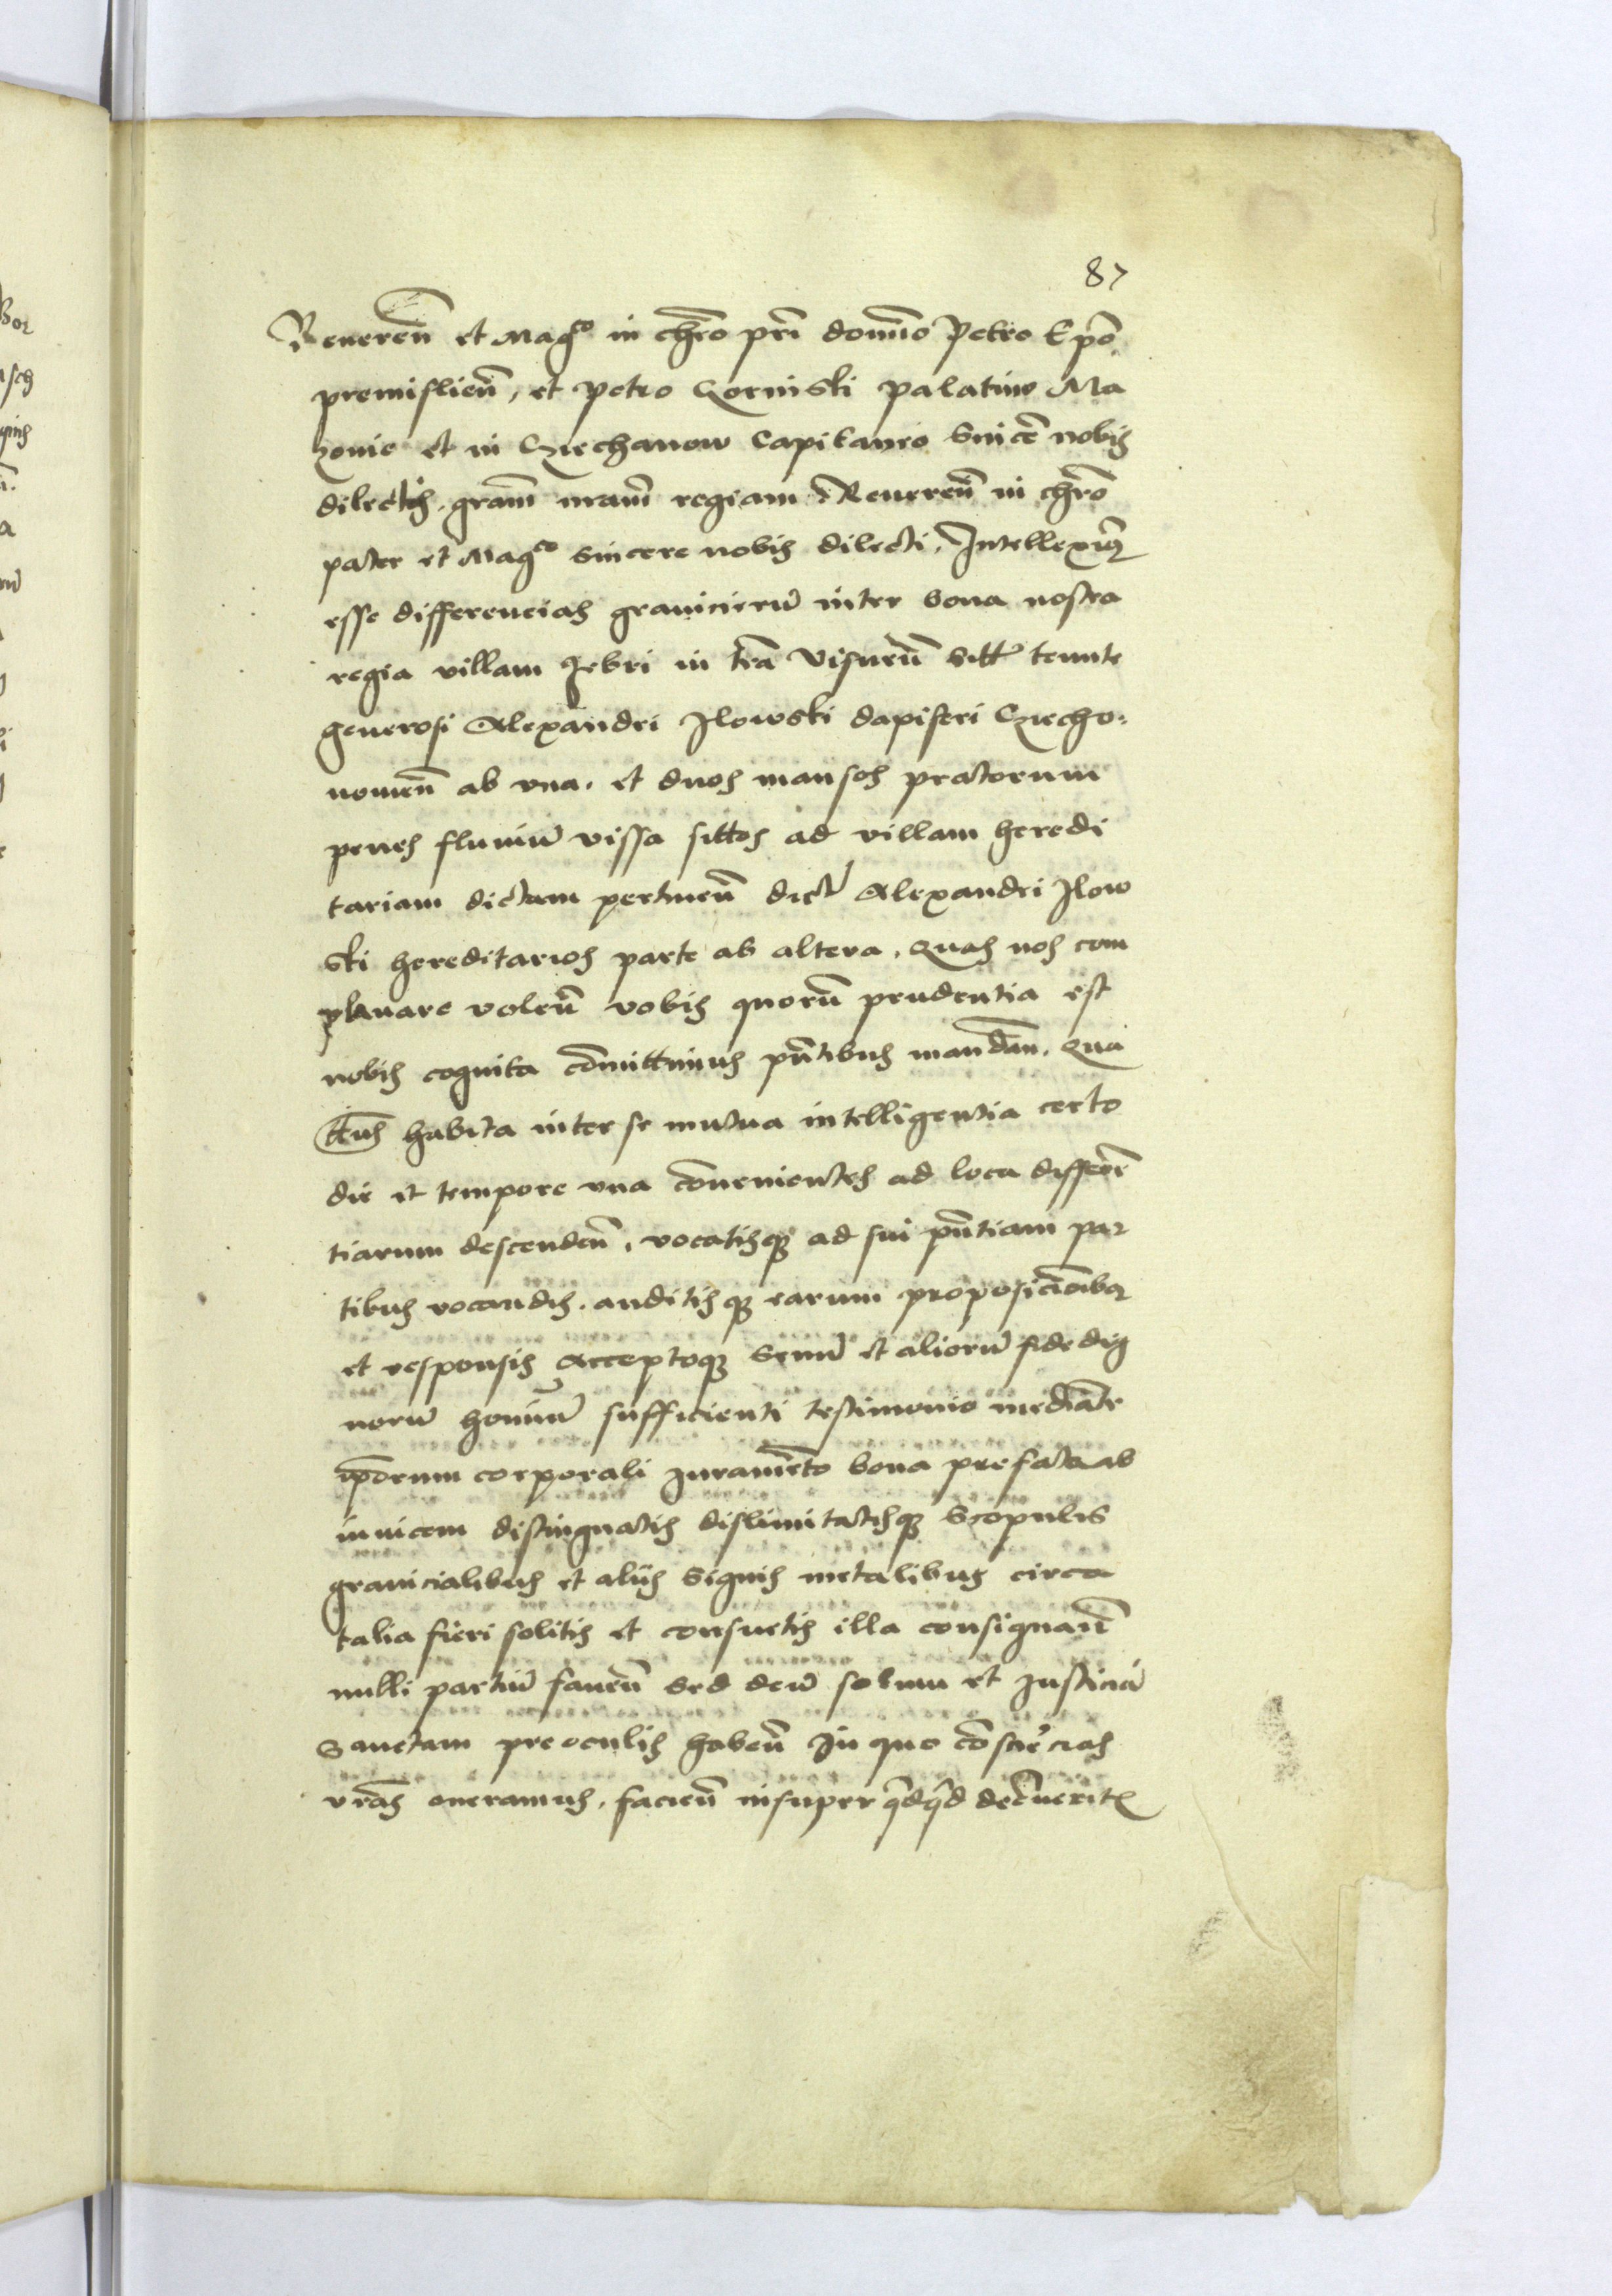 87
Reueren̄ et Mag^co in chr̄o pr̄i domino Petro Ep̄o
premislien̄, et petro Gorinski palatino Ma
zouie et in Cziechanow Capitaneo Sincē nobis
dilectis. gram̄ nram̄ regiam Reueren̄ in chr̄o
pater et Mag^co sincere nobis dilecti. Intelleximꝰ
esse differencias granicierū inter bona nostra
regia villam Jebri in tr̄a Visnen̄ Sitt̄ tenute
generosi Alexandri Ilowski dapiferi Cziecho:
nouien̄ ab vna. et duos mansos pratorum
penes fluuiū vissa sittos ad villam heredi
tariam dictam pertinen̄ dict̄ Alexandri Ilow
ski hereditarios parte ab altera. Quas nos com
planare volen̄ vobis quorū prudentia est
nobis cognita com̄ittimus pn̄tibus mandan̄. Qua
tt̄us habita inter se mutua intelligentia certo
die et tempore vna con̄uenientes ad loca differen̄
tiarum descenden̄. vocatisqꝫ ad sui pn̄tiam par
tibus vocandis. auditisqꝫ earum proposicion̄ibꝰ
et responsis Acceptoqꝫ Senū et aliorū fidedig
norū hominū sufficienti testimonio median̄te
ip̄orum corporali Juramen̄to bona prefata ab
inuicem distinguatis dislimitatisqꝫ Scopulis
granicialibus et alijs Signis metalibus circa
talia fieri solitis et consuetis illa consignan̄
nulli partiū fauen̄ Sed deū solum et Justiciā
Sanctam pre oculis haben̄ In quo con̄sciēcias
vr̄as oneramus. facien̄ insuper qͥdqͥd decreueritis